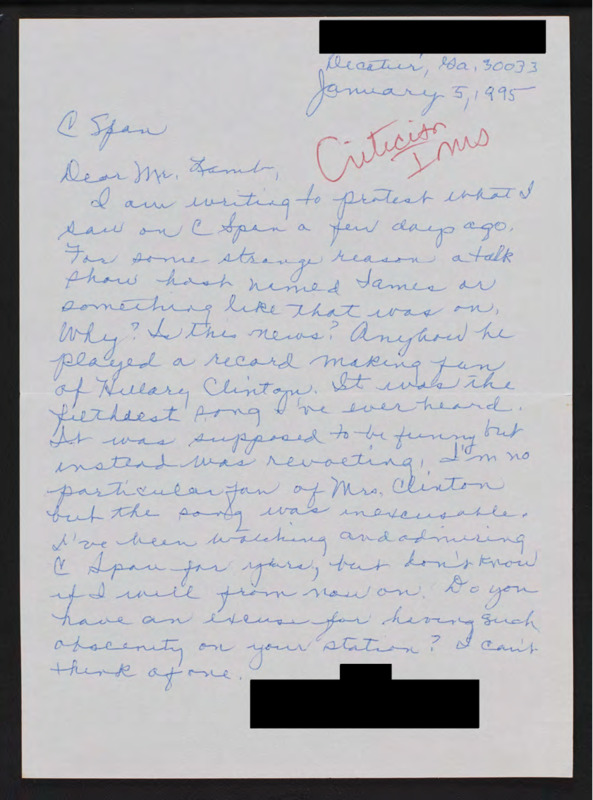 Decatur, Ga. 30033
January 5, 1995
C Span
Criticism
Imus
Dear Mr. Lamb,
I am writing to protest what I
saw on C Span a few days ago.
For some strange reason a talk
show host named James or
something like that was on.
Why? Is this news? Anyhow he
played a record making fun
of Hillary Clinton. It was the
filthiest song I've ever heard.
It was supposed to be funny but
instead was revolting. I'm no
particular fan of Mrs. Clinton
but the song was inexcusable.
I've been watching and admiring
C Span for years, but don't know
if I will from now on. Do you
have an excuse for having such
obscenity on your station? I can't
think of one.